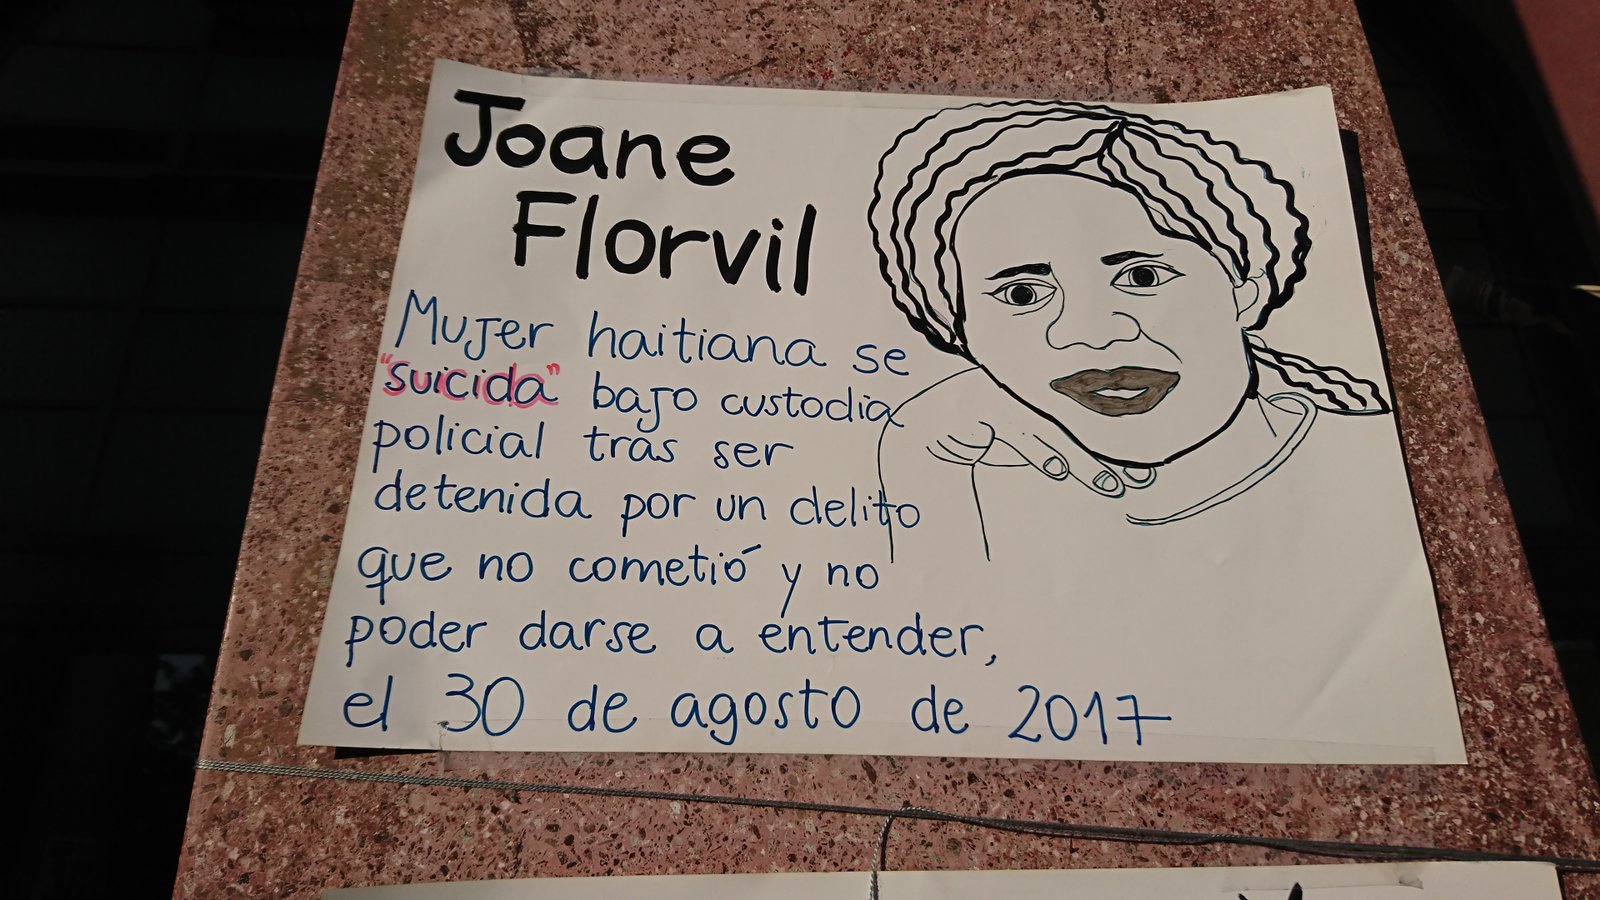 Joane
Florvil
Mujer haitiana se
"suicida" bajo custodia
policial tras ser
detenida por un delito
que no cometió y no
poder darse a entender,
el 30 de agosto de 2017